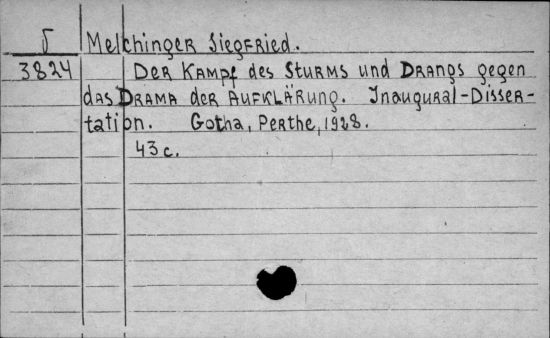 Б Melchinger Siegfried.
3824 Der Kampf des Sturms und Drangs gegen
das Drama der Aufklärung. Inaugural-Disser-
tation. Gotha, Perthe, 1928.
43 c.